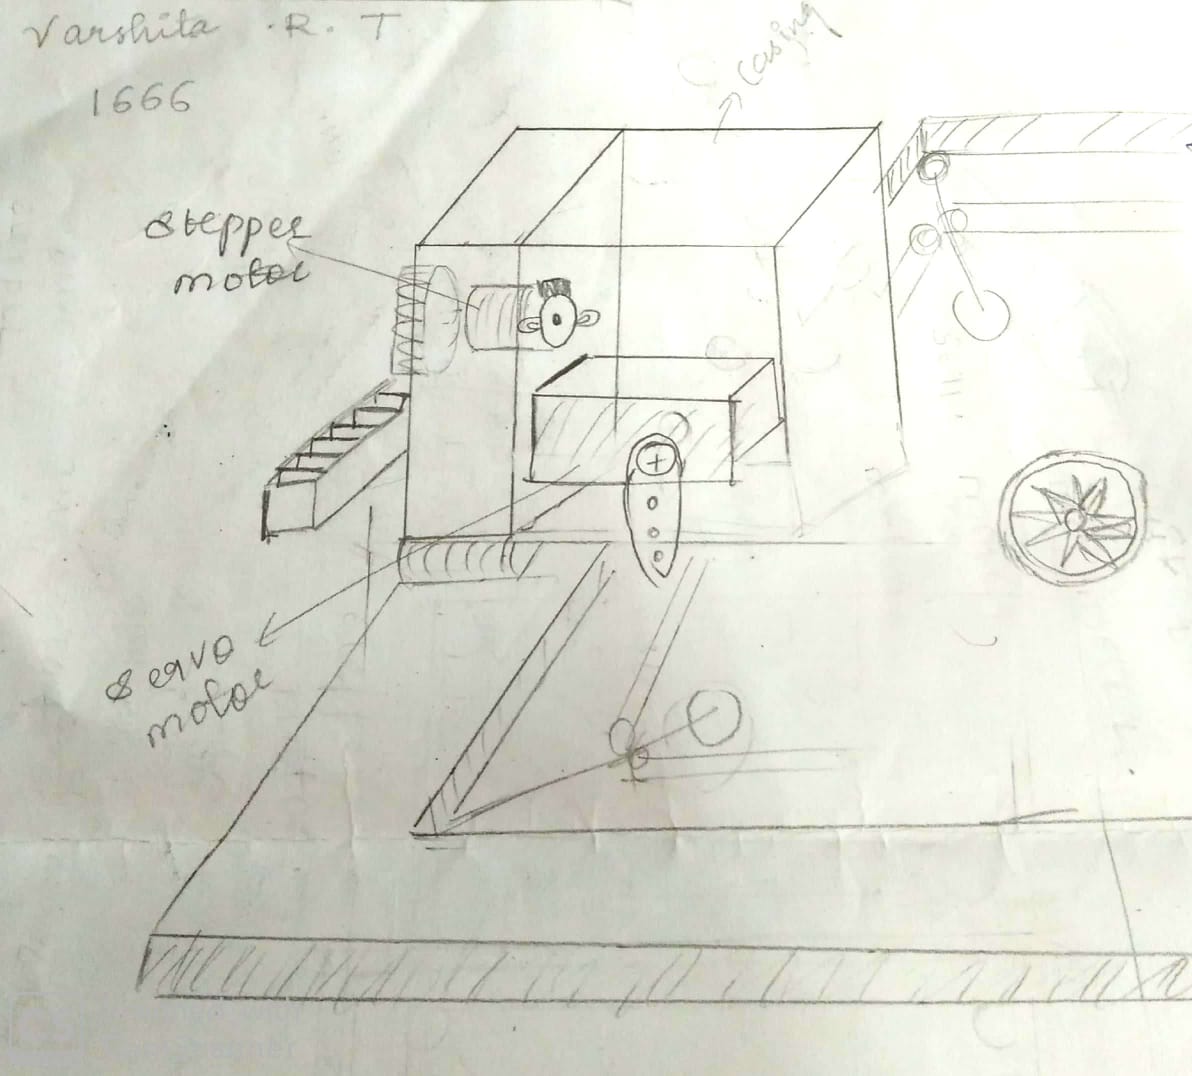 Varshita .R. T
1666
casing
stepper
motor
servo
motor